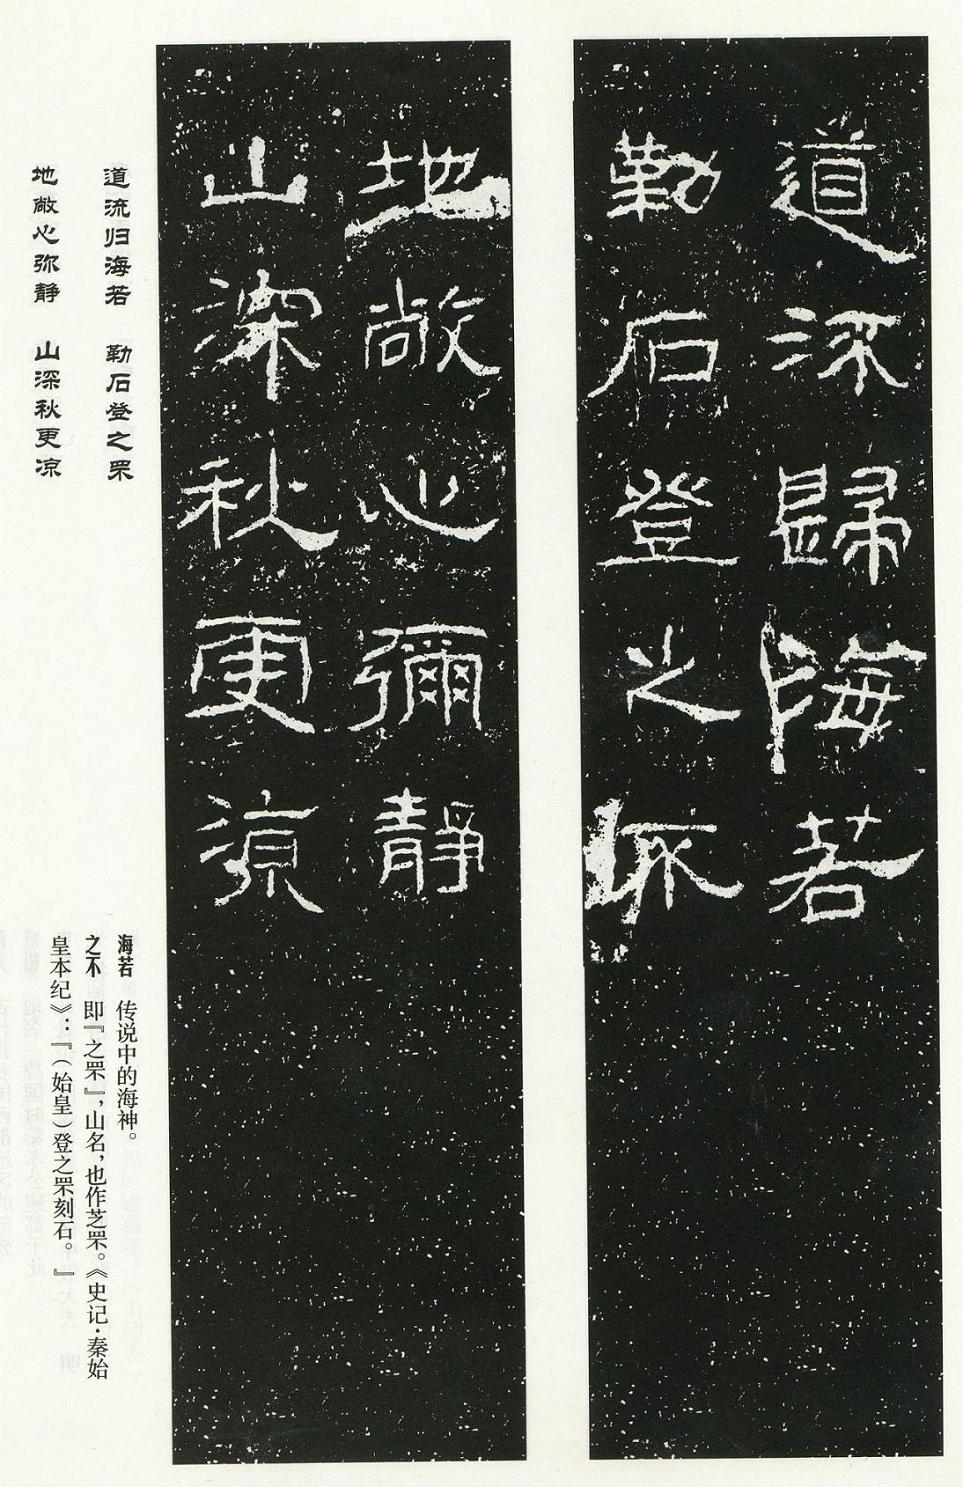 道泝歸海若
勒石登之罘
地敞心彌靜
山深秋更涼
道流归海若 勒石登之罘
地敞心弥静 山深秋更凉
海若 传说中的海神。
之不 即『之罘』，山名，也作芝罘。《史记·秦始
皇本纪》：『（始皇）登之罘刻石。』